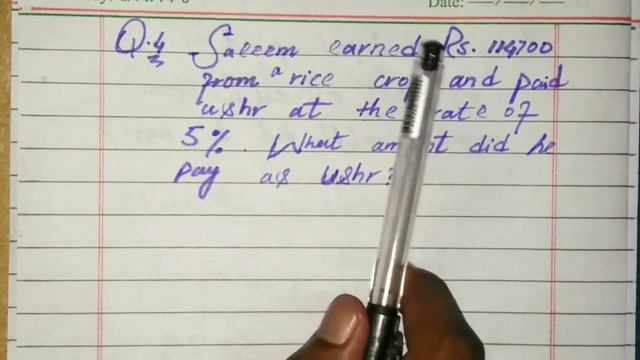 Date:
Q.4 Saleem earned Rs. 114700
from a rice crop and paid
ushr at the rate of
5%. What am t did he
pay as ushr?